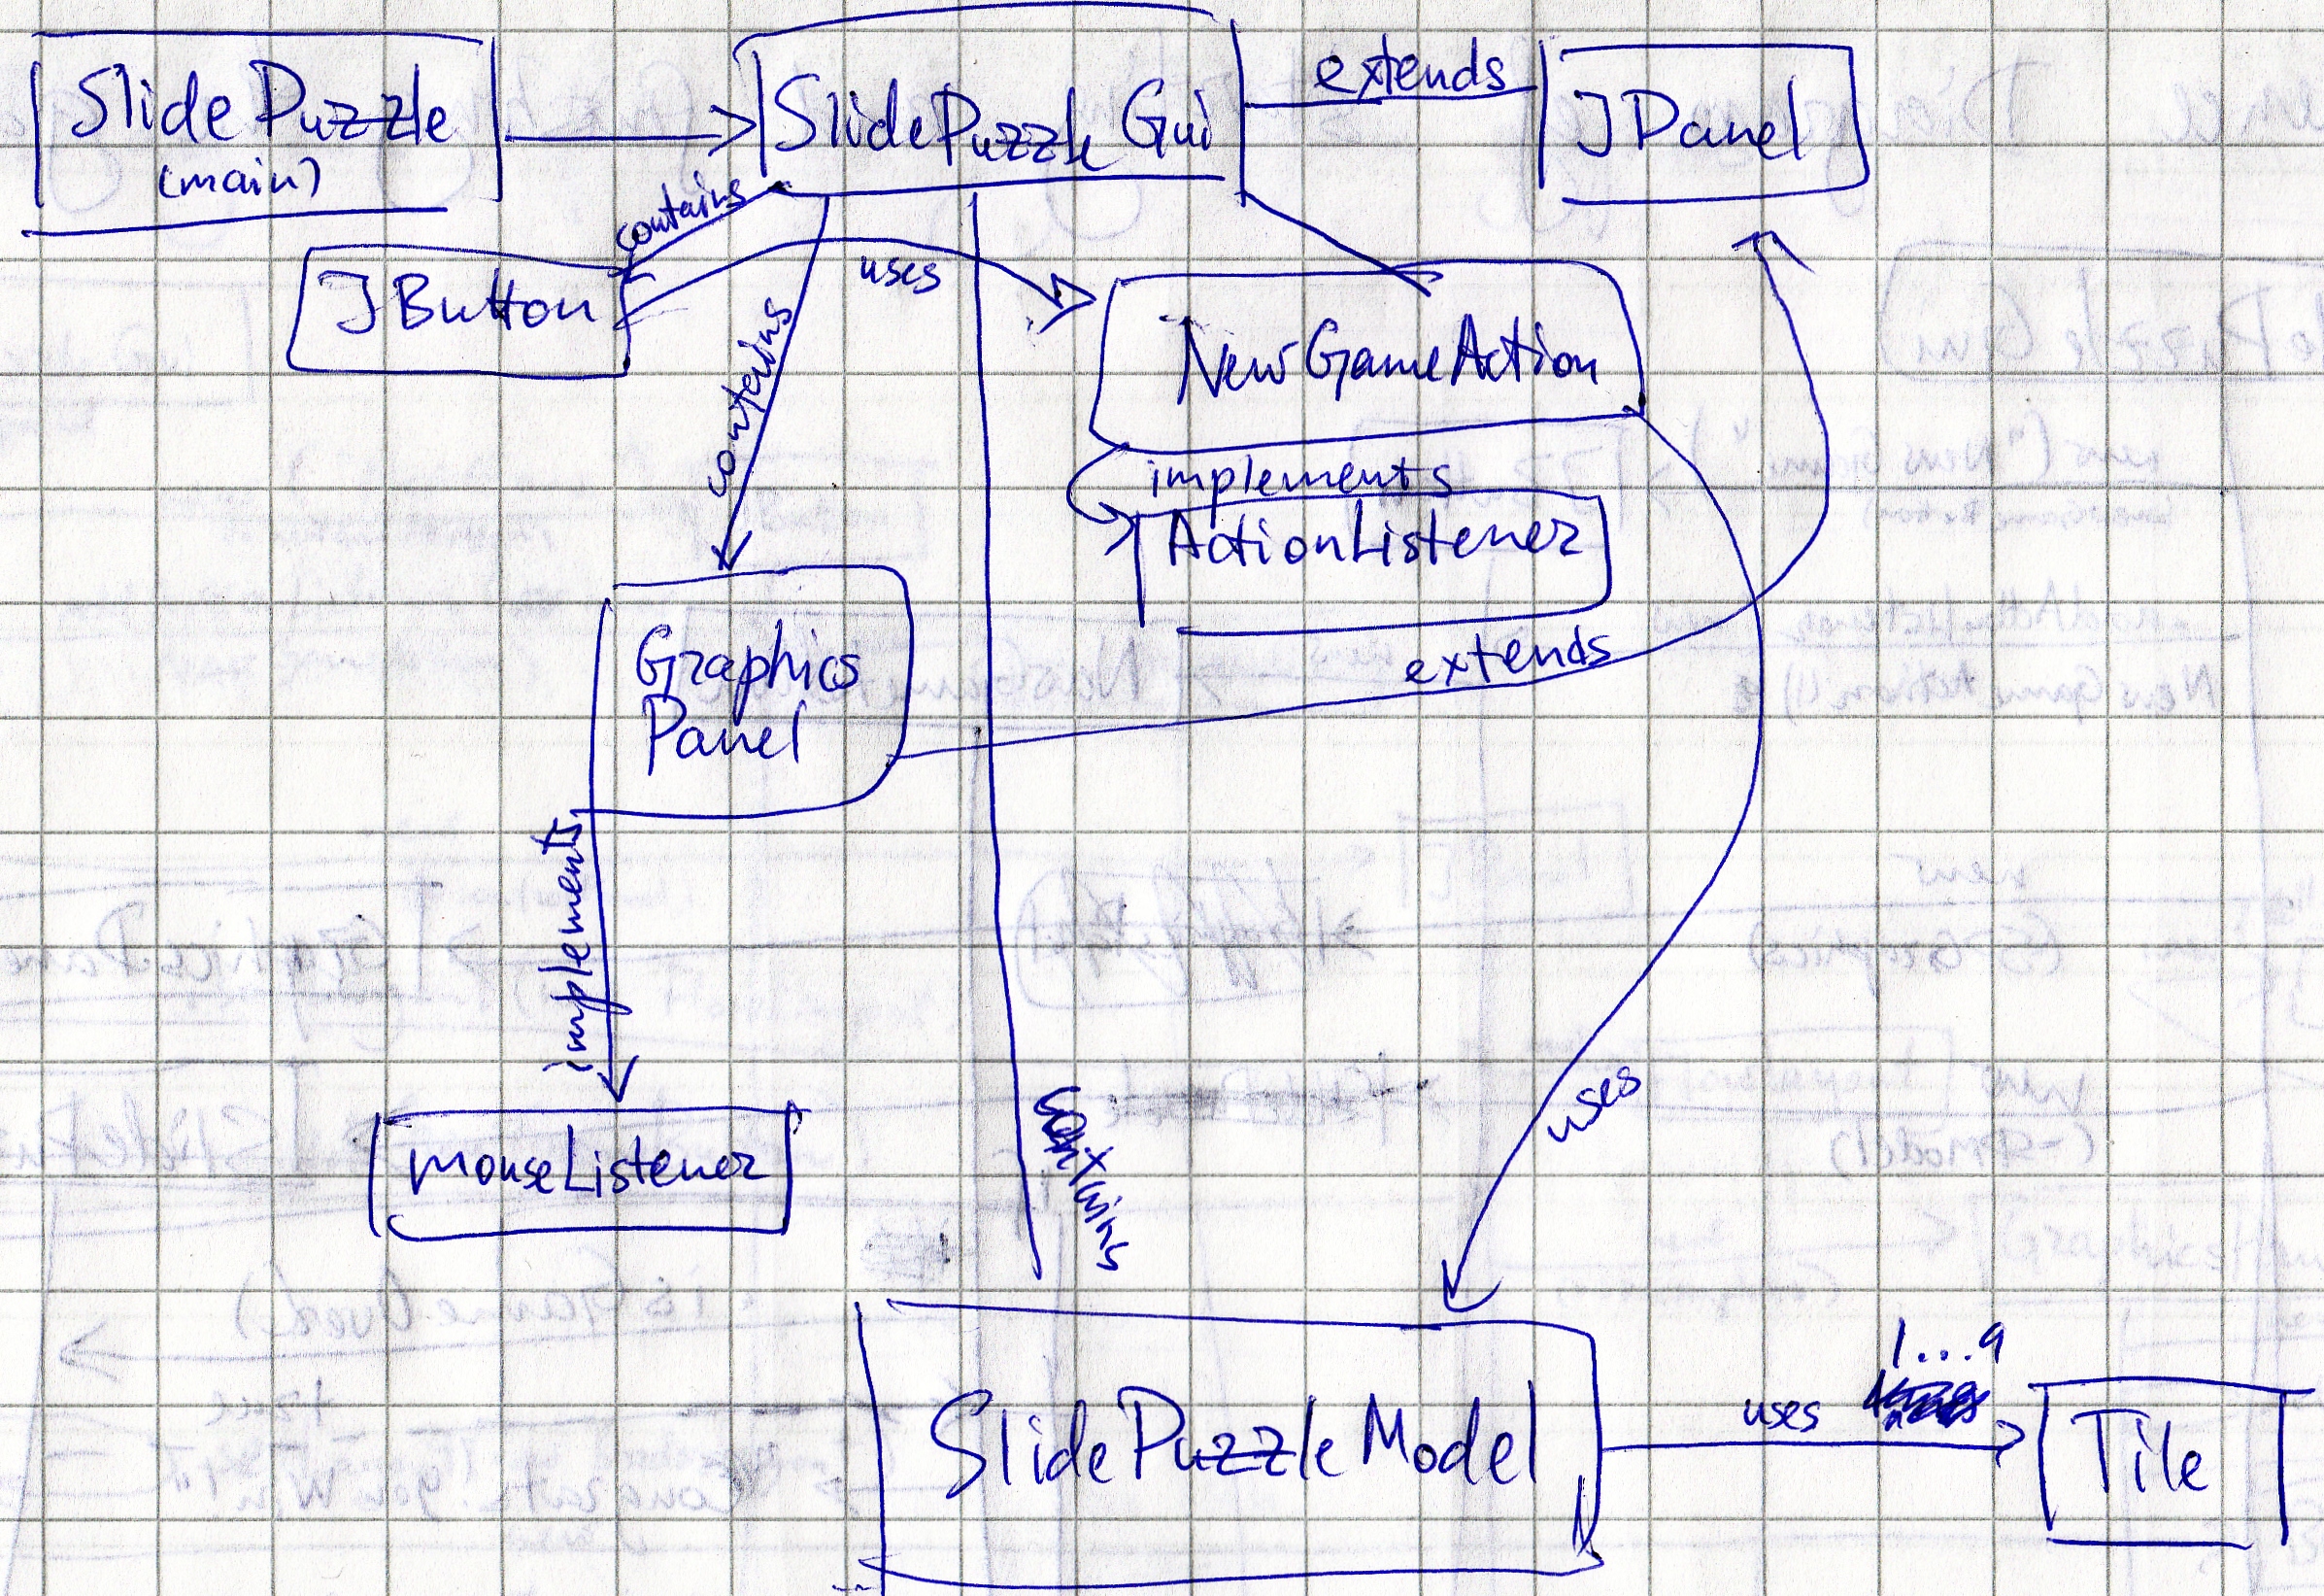 SlidePuzzle
(main)
SlidePuzzleGui
extends
JPanel
contains
JButton
uses
contains
NewGameAction
implements
ActionListener
Graphics
Panel
extends
implements
MouseListener
contains
uses
SlidePuzzleModel
uses
1...9
Tile